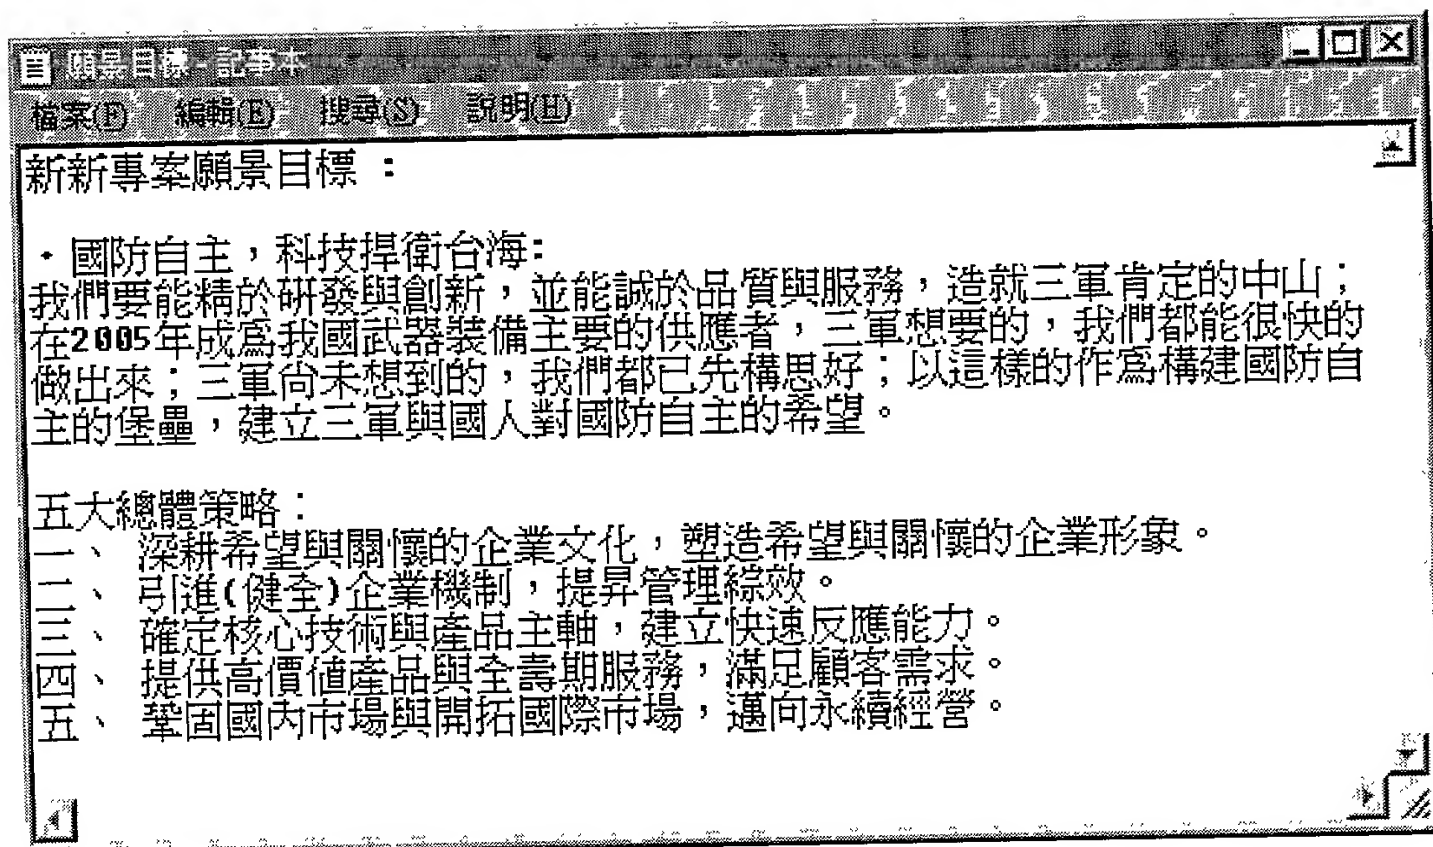 願景目標 - 記事本
檔案(F) 編輯(E) 搜尋(S) 說明(H)
新新專案願景目標 :
・國防自主，科技捍衛台海:
我們要能精於研發與創新，並能誠於品質與服務，造就三軍肯定的中山；
在2005年成為我國武器裝備主要的供應者，三軍想要的，我們都能很快的
做出來；三軍尚未想到的，我們都已先構思好；以這樣的作為構建國防自
主的堡壘，建立三軍與國人對國防自主的希望。
五大總體策略：
一、 深耕希望與關懷的企業文化，塑造希望與關懷的企業形象。
二、 引進(健全)企業機制，提昇管理綜效。
三、 確定核心技術與產品主軸，建立快速反應能力。
四、 提供高價值產品與全壽期服務，滿足顧客需求。
五、 鞏固國內市場與開拓國際市場，邁向永續經營。